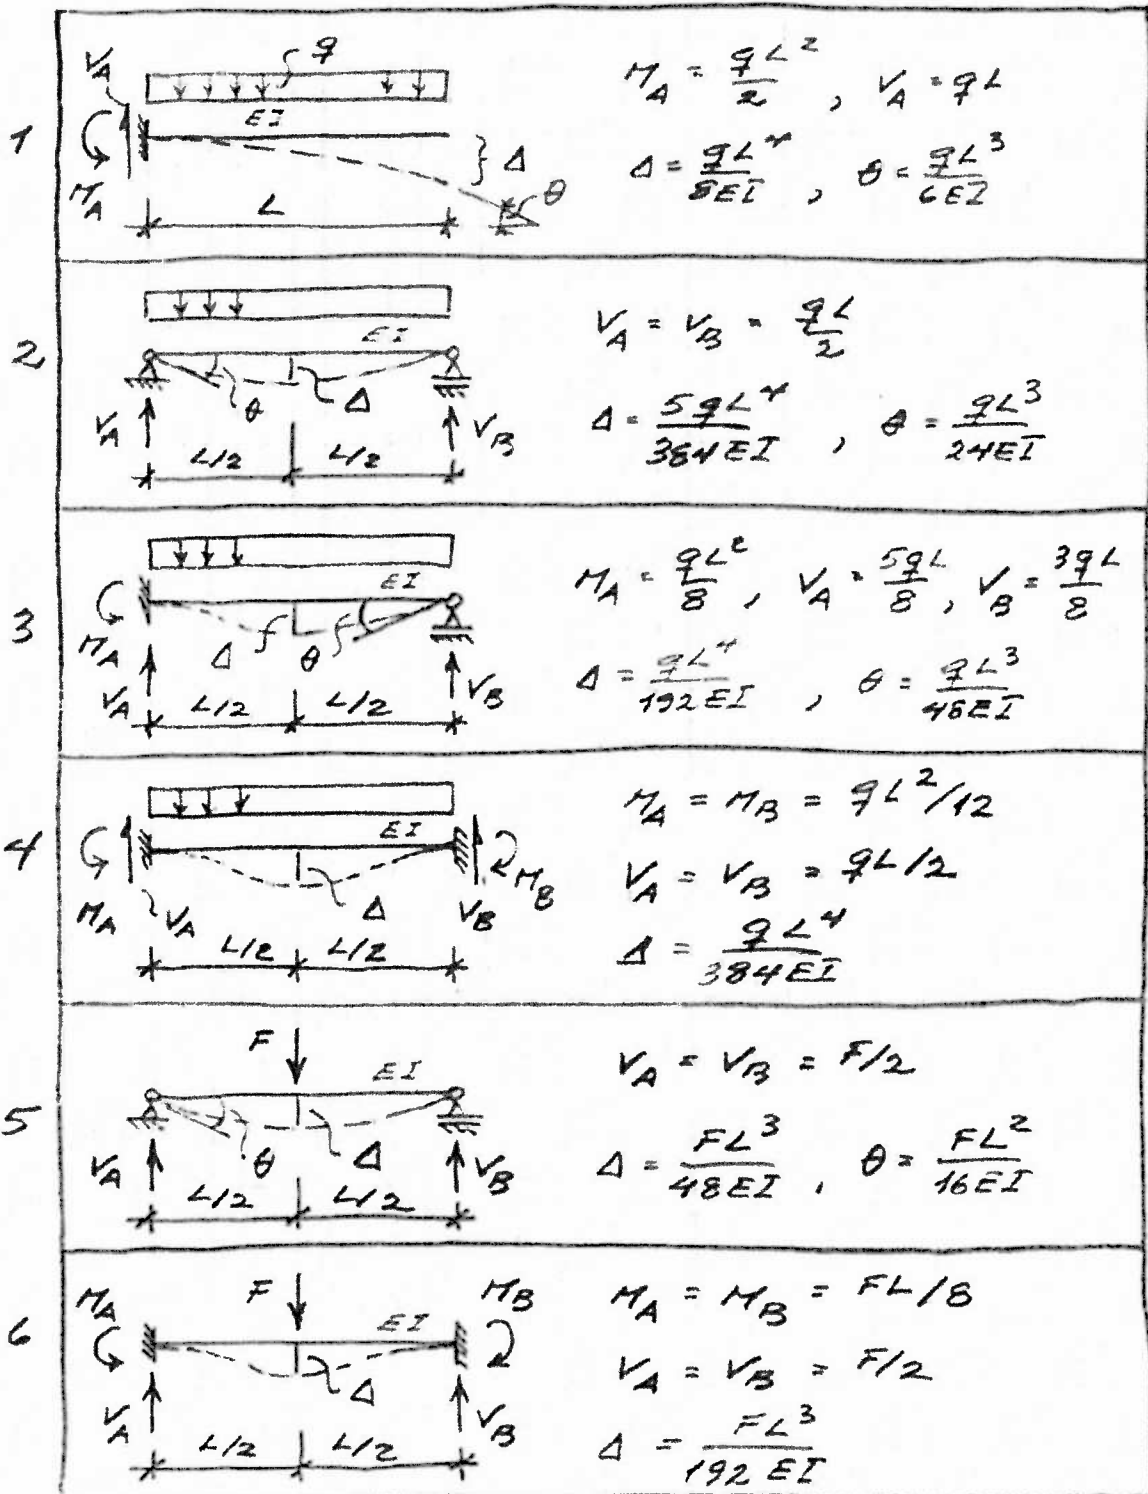 1
V_A
q
EI
M_A
Δ
θ
L
M_A = qL²/2 , V_A = qL
Δ = qL⁴/8EI , θ = qL³/6EI
2
EI
θ
Δ
V_A
V_B
L/2
L/2
V_A = V_B = qL/2
Δ = 5qL⁴/384EI , θ = qL³/24EI
3
EI
M_A
Δ
θ
V_A
V_B
L/2
L/2
M_A = qL²/8 , V_A = 5qL/8 , V_B = 3qL/8
Δ = qL⁴/192EI , θ = qL³/48EI
4
EI
M_A
V_A
Δ
V_B
M_B
L/2
L/2
M_A = M_B = qL²/12
V_A = V_B = qL/2
Δ = qL⁴/384EI
5
F
EI
θ
Δ
V_A
V_B
L/2
L/2
V_A = V_B = F/2
Δ = FL³/48EI , θ = FL²/16EI
6
M_A
F
EI
M_B
Δ
V_A
V_B
L/2
L/2
M_A = M_B = FL/8
V_A = V_B = F/2
Δ = FL³/192EI